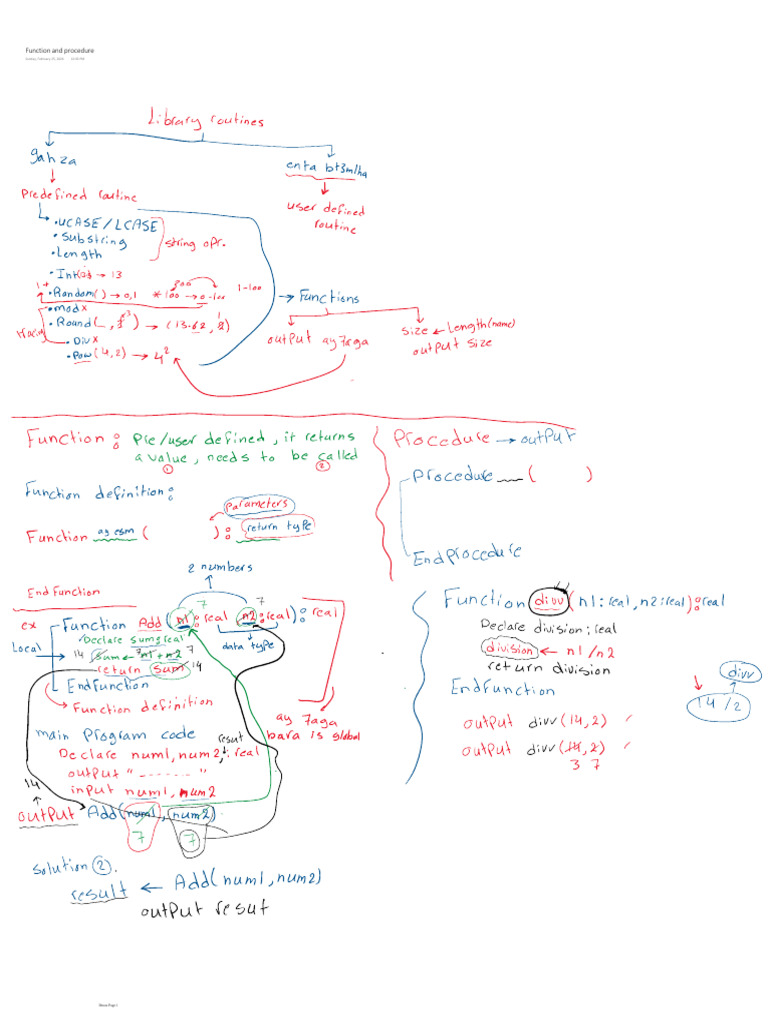 Function and procedure
Library routines
gahza
enta bt3mlha
Predefined routine
user defined
routine
• UCASE / LCASE
• Substring
• Length
string opr.
• Int( ) → 13
1+
• Random( ) → 0,1 * 100 → 0-100
200
1-100
• mod x
• Round( _ , 3 ) → (13.62, 2)
3
1
• Div x
• Pow (4,2) → 4²
→ Functions
output ay7aga
size ← Length(name)
output size
Function : Pre/user defined, it returns
a value, needs to be called
1 2
Function definition:
Parameters
Function ay esm ( ) : return type
End Function
2 numbers
7 7
ex Function Add (n1 : real , n2 : real) : real
Declare sum:real
Local
data type
14 sum ← n1 + n2 7
return sum 14
EndFunction
Function definition
ay 7aga
bara is global
main program code
result
Declare num1, num2, : real
output "- - - - - - "
input num1, num2
14
output Add(num1, num2)
7 7
solution 2.
result ← Add(num1, num2)
output resut
Procedure → output
Procedure ___ ( )
EndProcedure
Function divv (n1: real, n2:real):real
Declare division: real
division ← n1 / n2
return division
EndFunction
divv
14 / 2
output divv (14, 2)
output divv (14, 2)
3 7